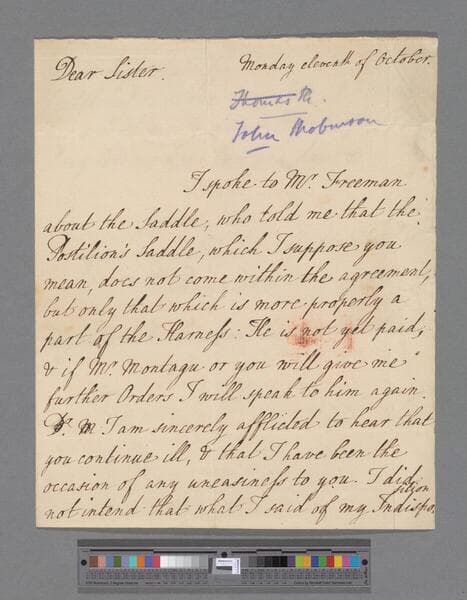 Dear Sister.
Monday eleventh of October.
Thomas R.
John Robinson
I spoke to Mr. Freeman
about the Saddle, who told me that the
Postilion's Saddle, which I suppose you
mean, does not come within the agreement,
but only that which is more properly a
part of the Harness: He is not yet paid,
& if Mr. Montagu or you will give me
further Orders I will speak to him again.
I am sincerely afflicted to hear that
you continue ill, & that I have been the
occasion of any uneasiness to you. I did
not intend that what I said of my Indispo
sition